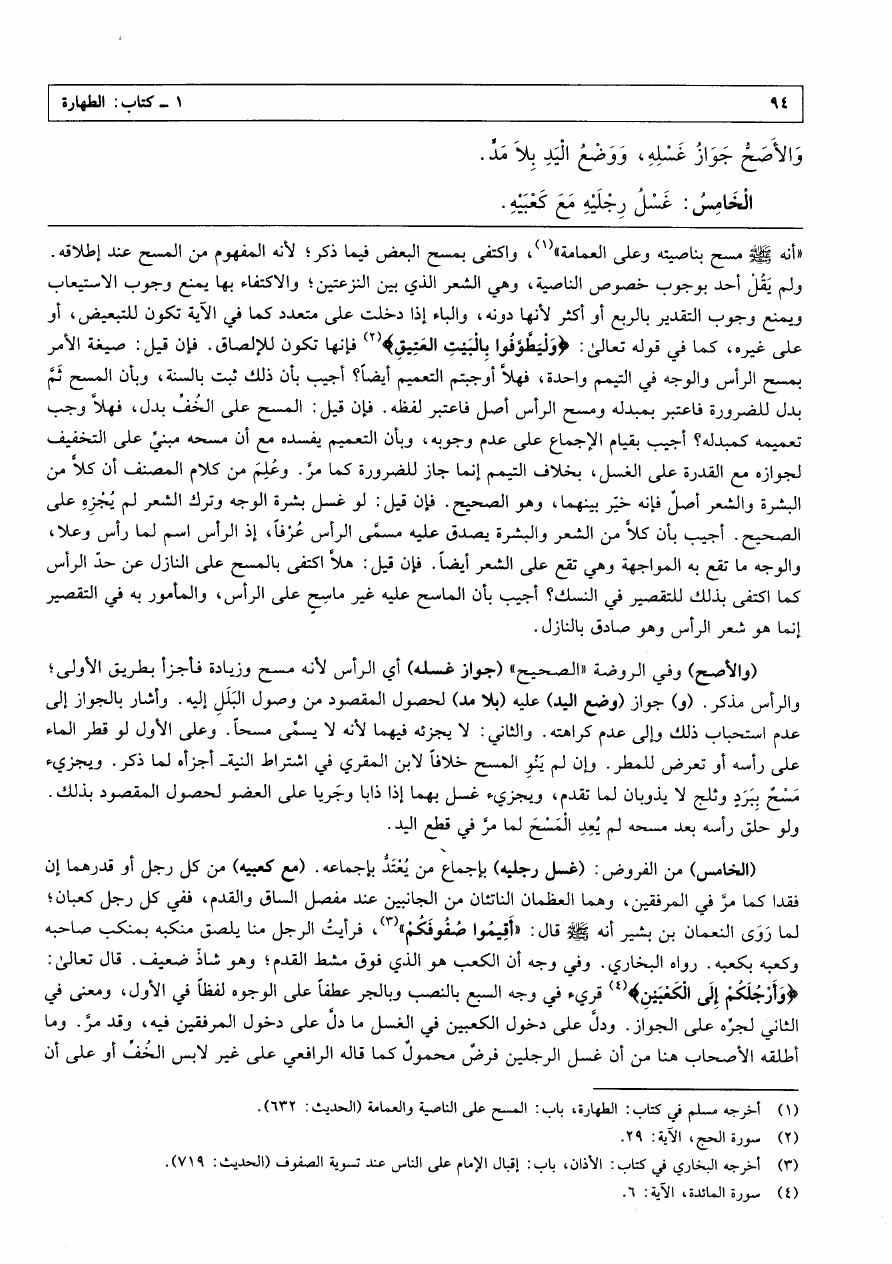 ٩٤
١ ــ كتاب: الطهارة
وَالأَصَحُّ جَوَازُ غَسْلِهِ، وَوَضْعُ الْيَدِ بِلاَ مَدٍّ.
الْخَامِسُ: غَسْلُ رِجْلَيْهِ مَعَ كَعْبَيْهِ.
«أنه ﷺ مسح بناصيته وعلى العمامة»(١)، واكتفى بمسح البعض فيما ذكر؛ لأنه المفهوم من المسح عند إطلاقه.
ولم يَقُلْ أحد بوجوب خصوص الناصية، وهي الشعر الذي بين النزعتين؛ والاكتفاء بها يمنع وجوب الاستيعاب
ويمنع وجوب التقدير بالربع أو أكثر لأنها دونه، والباء إذا دخلت على متعدد كما في الآية تكون للتبعيض، أو
على غيره، كما في قوله تعالىٰ: ﴿وَلْيَطَّوَّفُوا بِالْبَيْتِ العَتِيقِ﴾(٢) فإنها تكون للإلصاق. فإن قيل: صيغة الأمر
بمسح الرأس والوجه في التيمم واحدة، فهلاَّ أوجبتم التعميم أيضاً؟ أجيب بأن ذلك ثبت بالسنة، وبأن المسح ثَمَّ
بدل للضرورة فاعتبر بمبدله ومسح الرأس أصل فاعتبر لفظه. فإن قيل: المسح على الخُفِّ بدل، فهلاَّ وجب
تعميمه كمبدله؟ أجيب بقيام الإجماع على عدم وجوبه، وبأن التعميم يفسده مع أن مسحه مبنيٌّ على التخفيف
لجوازه مع القدرة على الغسل، بخلاف التيمم إنما جاز للضرورة كما مرَّ. وعُلِمَ من كلام المصنف أن كلاًّ من
البشرة والشعر أصلٌ فإنه خيّر بينهما، وهو الصحيح. فإن قيل: لو غسل بشرة الوجه وترك الشعر لم يُجْزِهِ على
الصحيح. أجيب بأن كلاًّ من الشعر والبشرة يصدق عليه مسمَّى الرأس عُرْفاً، إذ الرأس اسم لما رأس وعلا،
والوجه ما تقع به المواجهة وهي تقع على الشعر أيضاً. فإن قيل: هلاَّ اكتفى بالمسح على النازل عن حدّ الرأس
كما اكتفى بذلك للتقصير في النسك؟ أجيب بأن الماسح عليه غير ماسِحٍ على الرأس، والمأمور به في التقصير
إنما هو شعر الرأس وهو صادق بالنازل.
(والأصح) وفي الروضة «الصحيح» (جواز غسله) أي الرأس لأنه مسح وزيادة فأجزأ بطريق الأولى؛
والرأس مذكر. (و) جواز (وضع اليد) عليه (بلا مد) لحصول المقصود من وصول البَلَلِ إليه. وأشار بالجواز إلى
عدم استحباب ذلك وإلى عدم كراهته. والثاني: لا يجزئه فيهما لأنه لا يسمَّى مسحاً. وعلى الأول لو قطر الماء
على رأسه أو تعرض للمطر. وإن لم يَنْوِ المسح خلافاً لابن المقري في اشتراط النيةـ أجزأه لما ذكر. ويجزيء
مَسْحٌ بِبَرَدٍ وثلج لا يذوبان لما تقدم، ويجزيء غسل بهما إذا ذابا وجَريا على العضو لحصول المقصود بذلك.
ولو حلق رأسه بعد مسحه لم يُعِدِ الْمَسْحَ لما مرَّ في قطع اليد.
(الخامس) من الفروض: (غسل رجليه) بإجماع من يُعْتَدُّ بإجماعه. (مع كعبيه) من كل رجل أو قدرهما إن
فقدا كما مرَّ في المرفقين، وهما العظمان الناتئان من الجانبين عند مفصل الساق والقدم، ففي كل رجل كعبان؛
لما رَوَى النعمان بن بشير أنه ﷺ قال: «أَقِيمُوا صُفُوفَكُمْ»(٣)، فرأيتُ الرجل منا يلصق منكبه بمنكب صاحبه
وكعبه بكعبه. رواه البخاري. وفي وجه أن الكعب هو الذي فوق مشط القدم؛ وهو شاذّ ضعيف. قال تعالىٰ:
﴿وَأَرْجُلَكُمْ إِلَى الْكَعْبَيْنِ﴾(٤) قريء في وجه السبع بالنصب وبالجر عطفاً على الوجوه لفظاً في الأول، ومعنى في
الثاني لجرِّه على الجواز. ودلَّ على دخول الكعبين في الغسل ما دلَّ على دخول المرفقين فيه، وقد مرَّ. وما
أطلقه الأصحاب هنا من أن غسل الرجلين فرضٌ محمولٌ كما قاله الرافعي على غير لابس الخُفِّ أو على أن
(١) أخرجه مسلم في كتاب: الطهارة، باب: المسح على الناصية والعمامة (الحديث: ٦٣٢).
(٢) سورة الحج، الآية: ٢٩.
(٣) أخرجه البخاري في كتاب: الأذان، باب: إقبال الإمام على الناس عند تسوية الصفوف (الحديث: ٧١٩).
(٤) سورة المائدة، الآية: ٦.